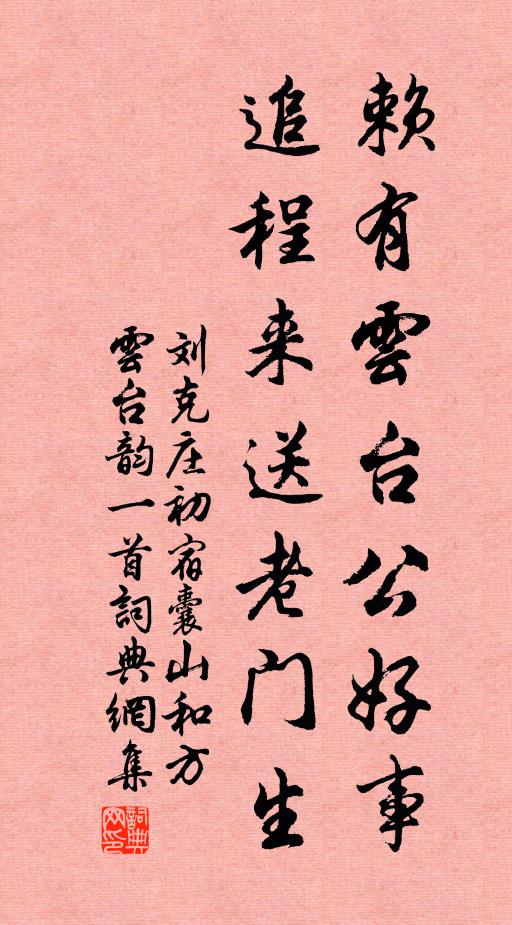 赖有雲台公好事
追程来送老门生
刘克庄初宿囊山和方
雲台韵一首詞典網集
詞典网印